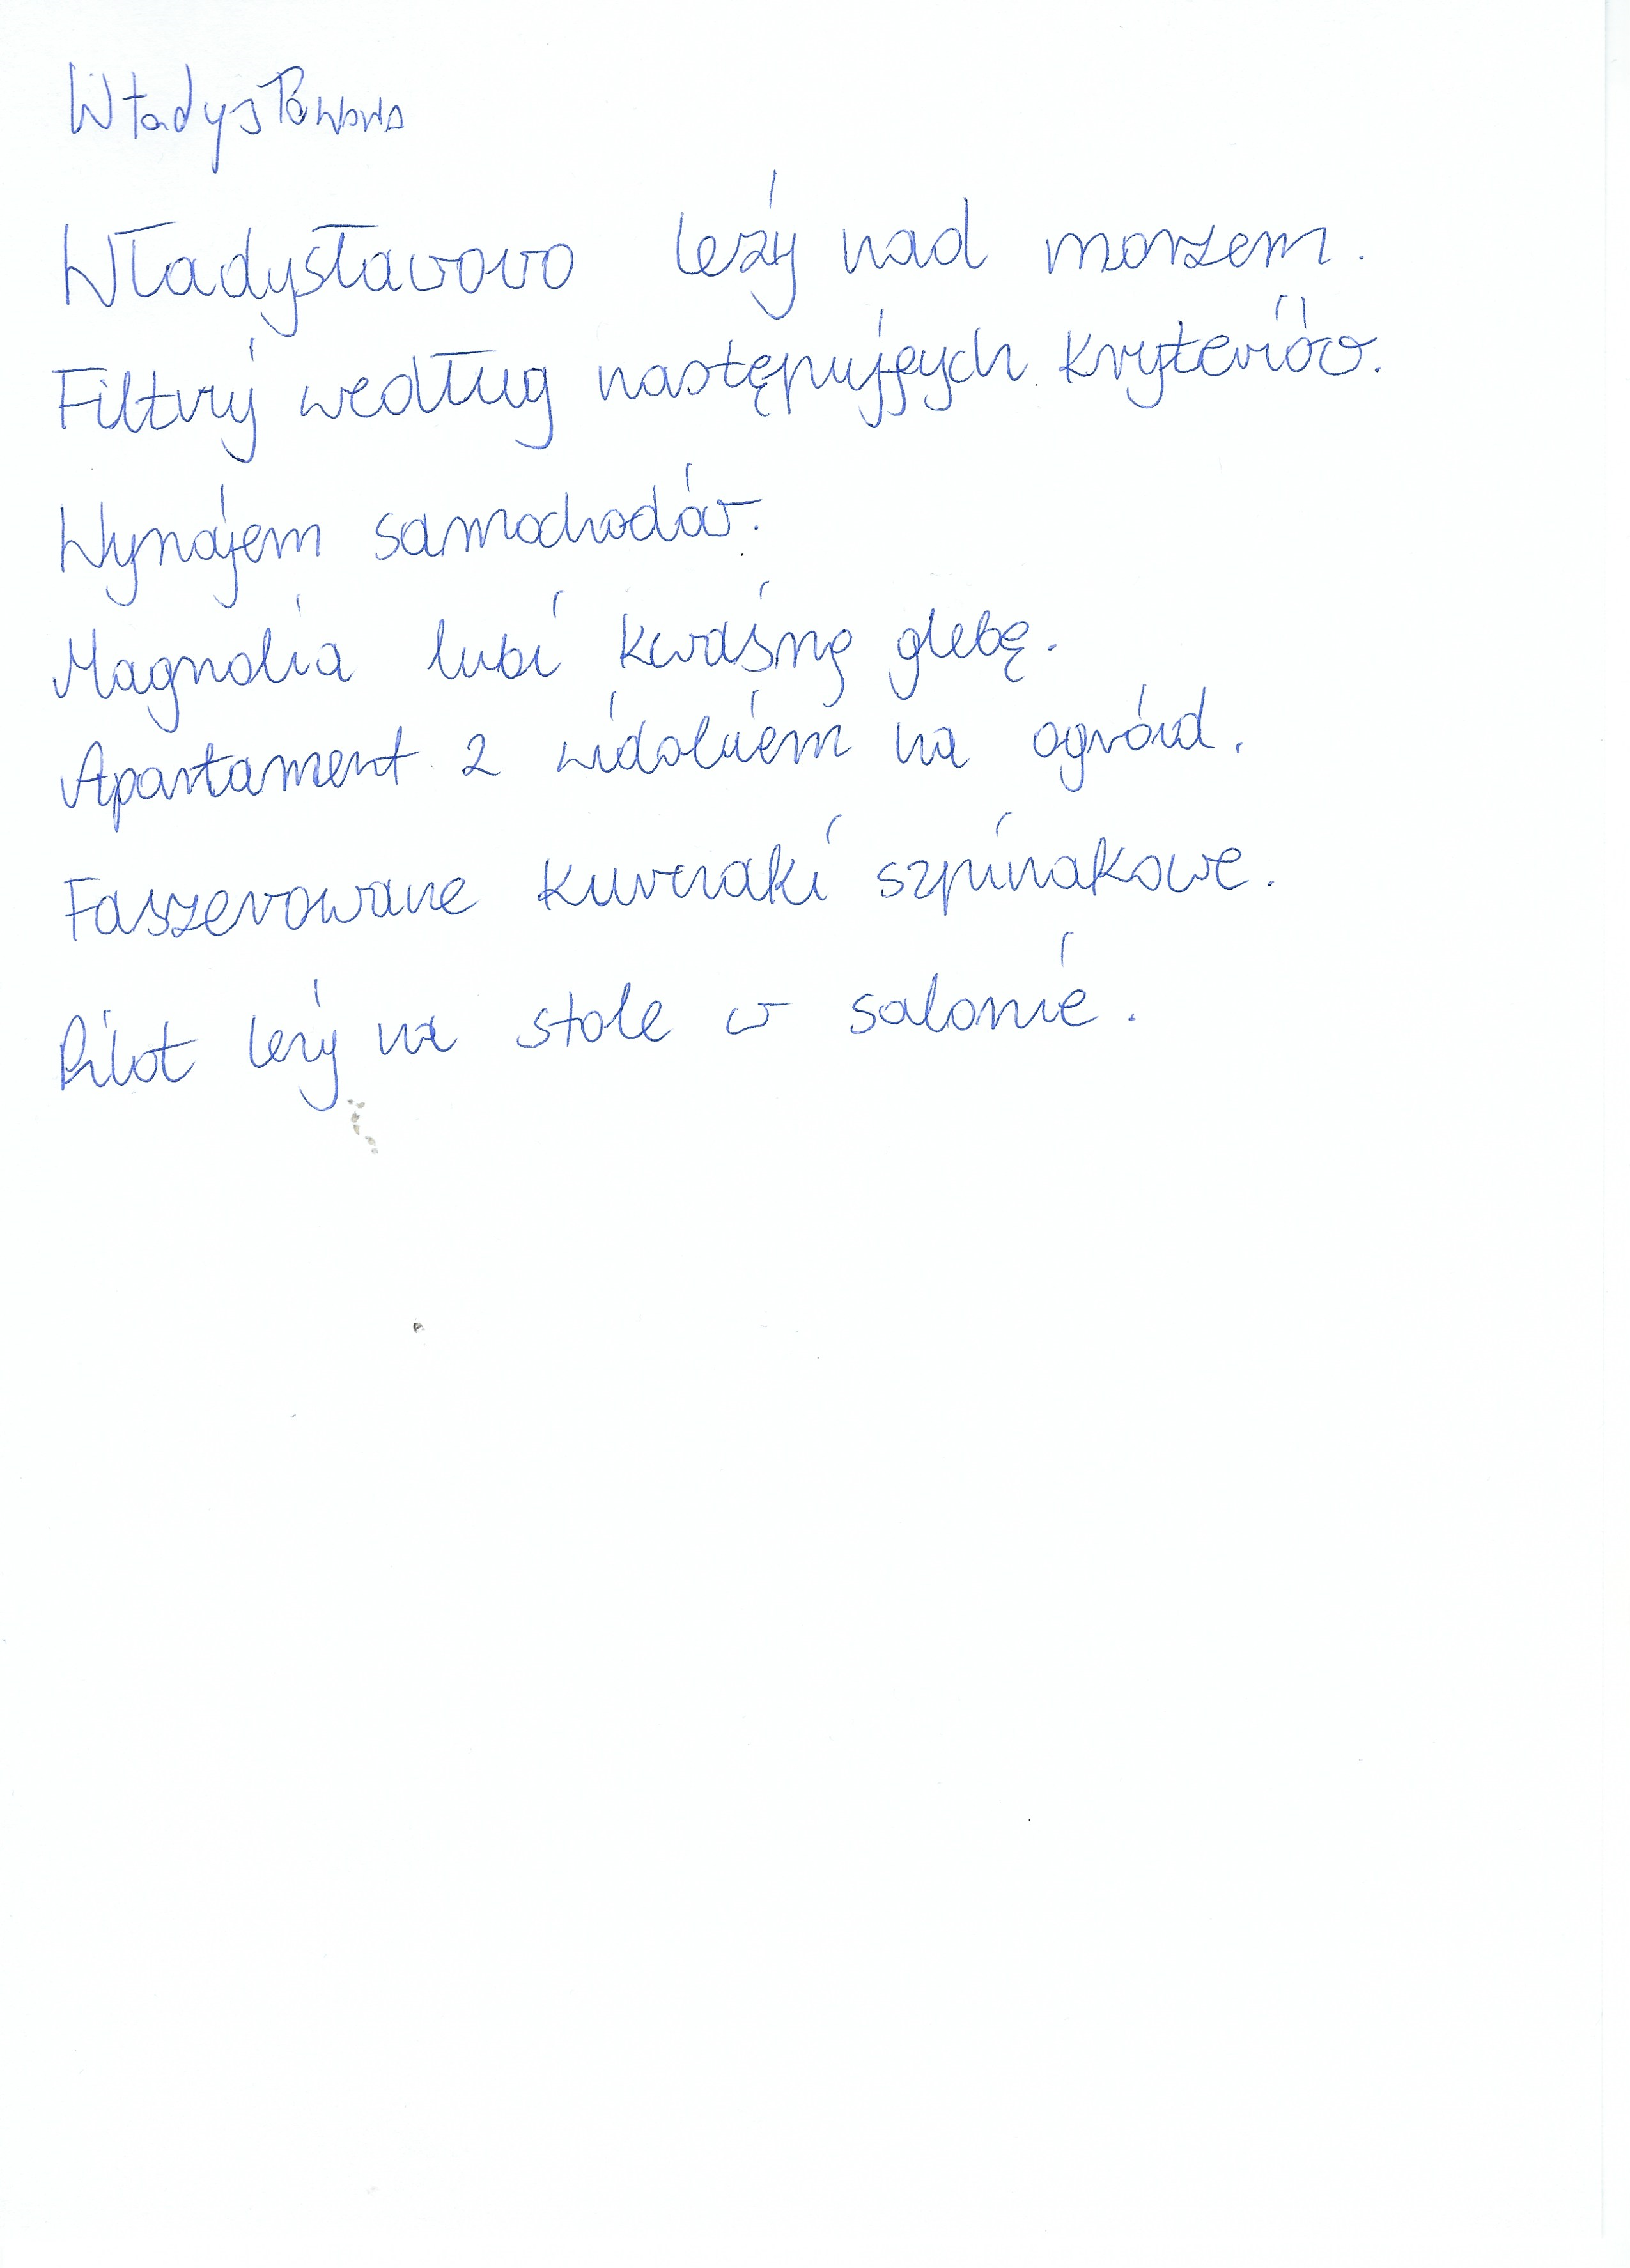 Władysławowo
Władysławowo leży nad morzem.
Filtruj według następujących kryteriów.
Wynajem samochodów.
Magnolia lubi kwaśną glebę.
Apartament z widokiem na ogród.
Faszerowane kurczaki szpinakowe.
Pilot leży na stole w salonie.